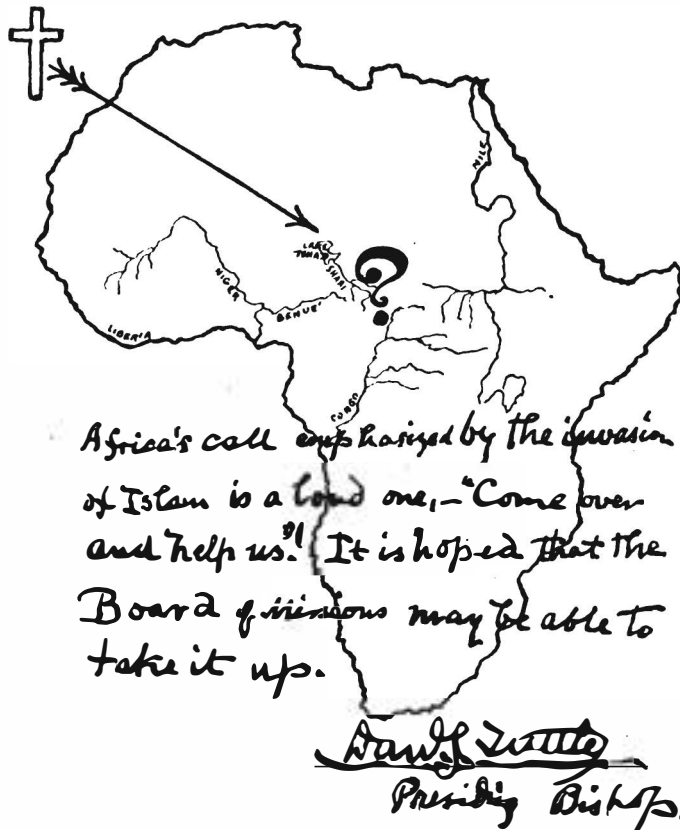 NILE
LAKE
TCHAD
SHARI
NIGER
BENUE
LIBERIA
CONGO
Africa's call emphasized by the invasion
of Islam is a loud one,—"Come over
and help us"! It is hoped that the
Board of missions may be able to
take it up.
Danl. S. Tuttle
Presiding Bishop.